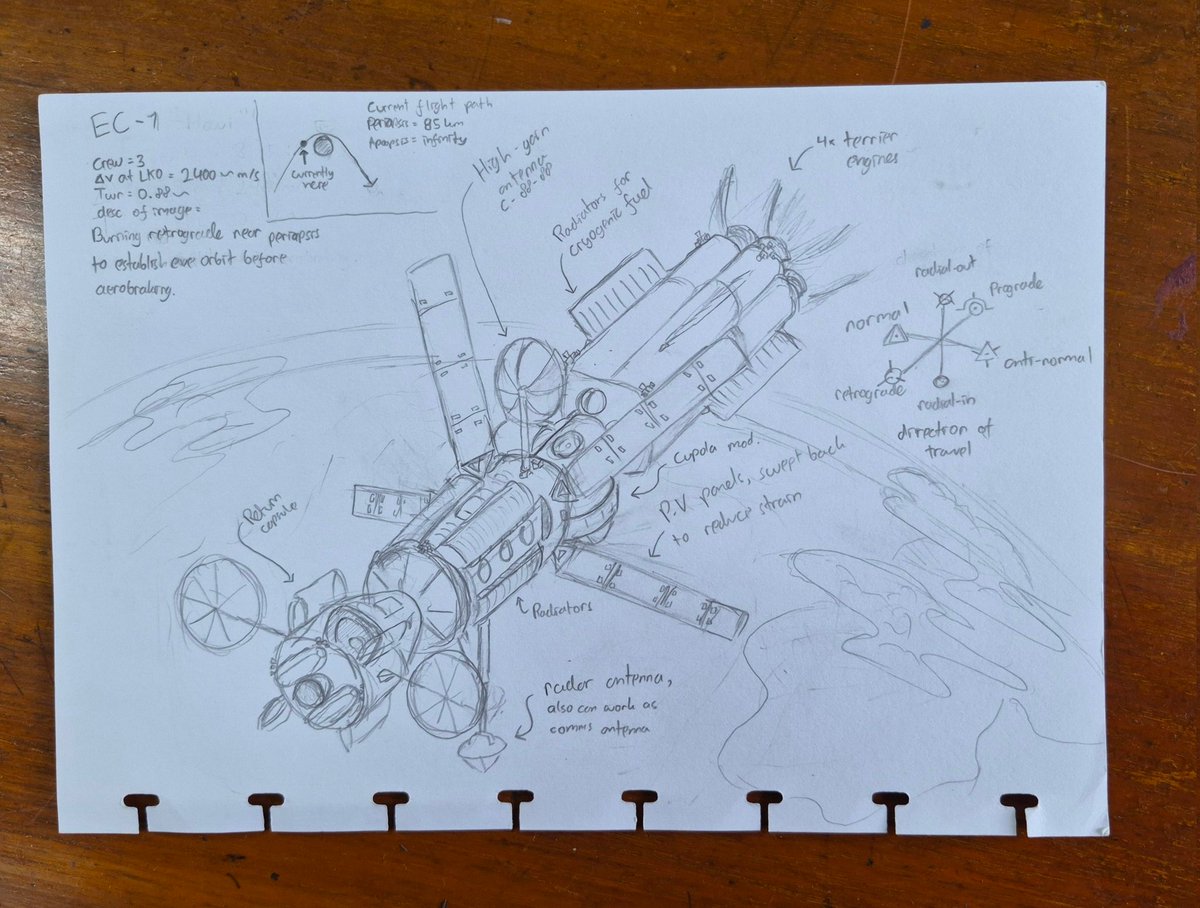 EC-1
Crew = 3
Δv at LKO = 2400 ~ m/s
Twr = 0.88~
desc of image =
Burning retrograde near periapsis
to establish eve orbit before
aerobraking.
Current flight path
Periapsis = 85 km
Apoapsis = infinity
currently
here
High-gain
antenna
C-88-88
Radiators for
cryogenic fuel
4x terrier
engines
radial-out
Prograde
normal
anti-normal
retrograde
radial-in
direction of
travel
Cupola mod.
P.V. panels, swept back
to reduce strain
Return
capsule
Radiators
radar antenna,
also can work as
comms antenna